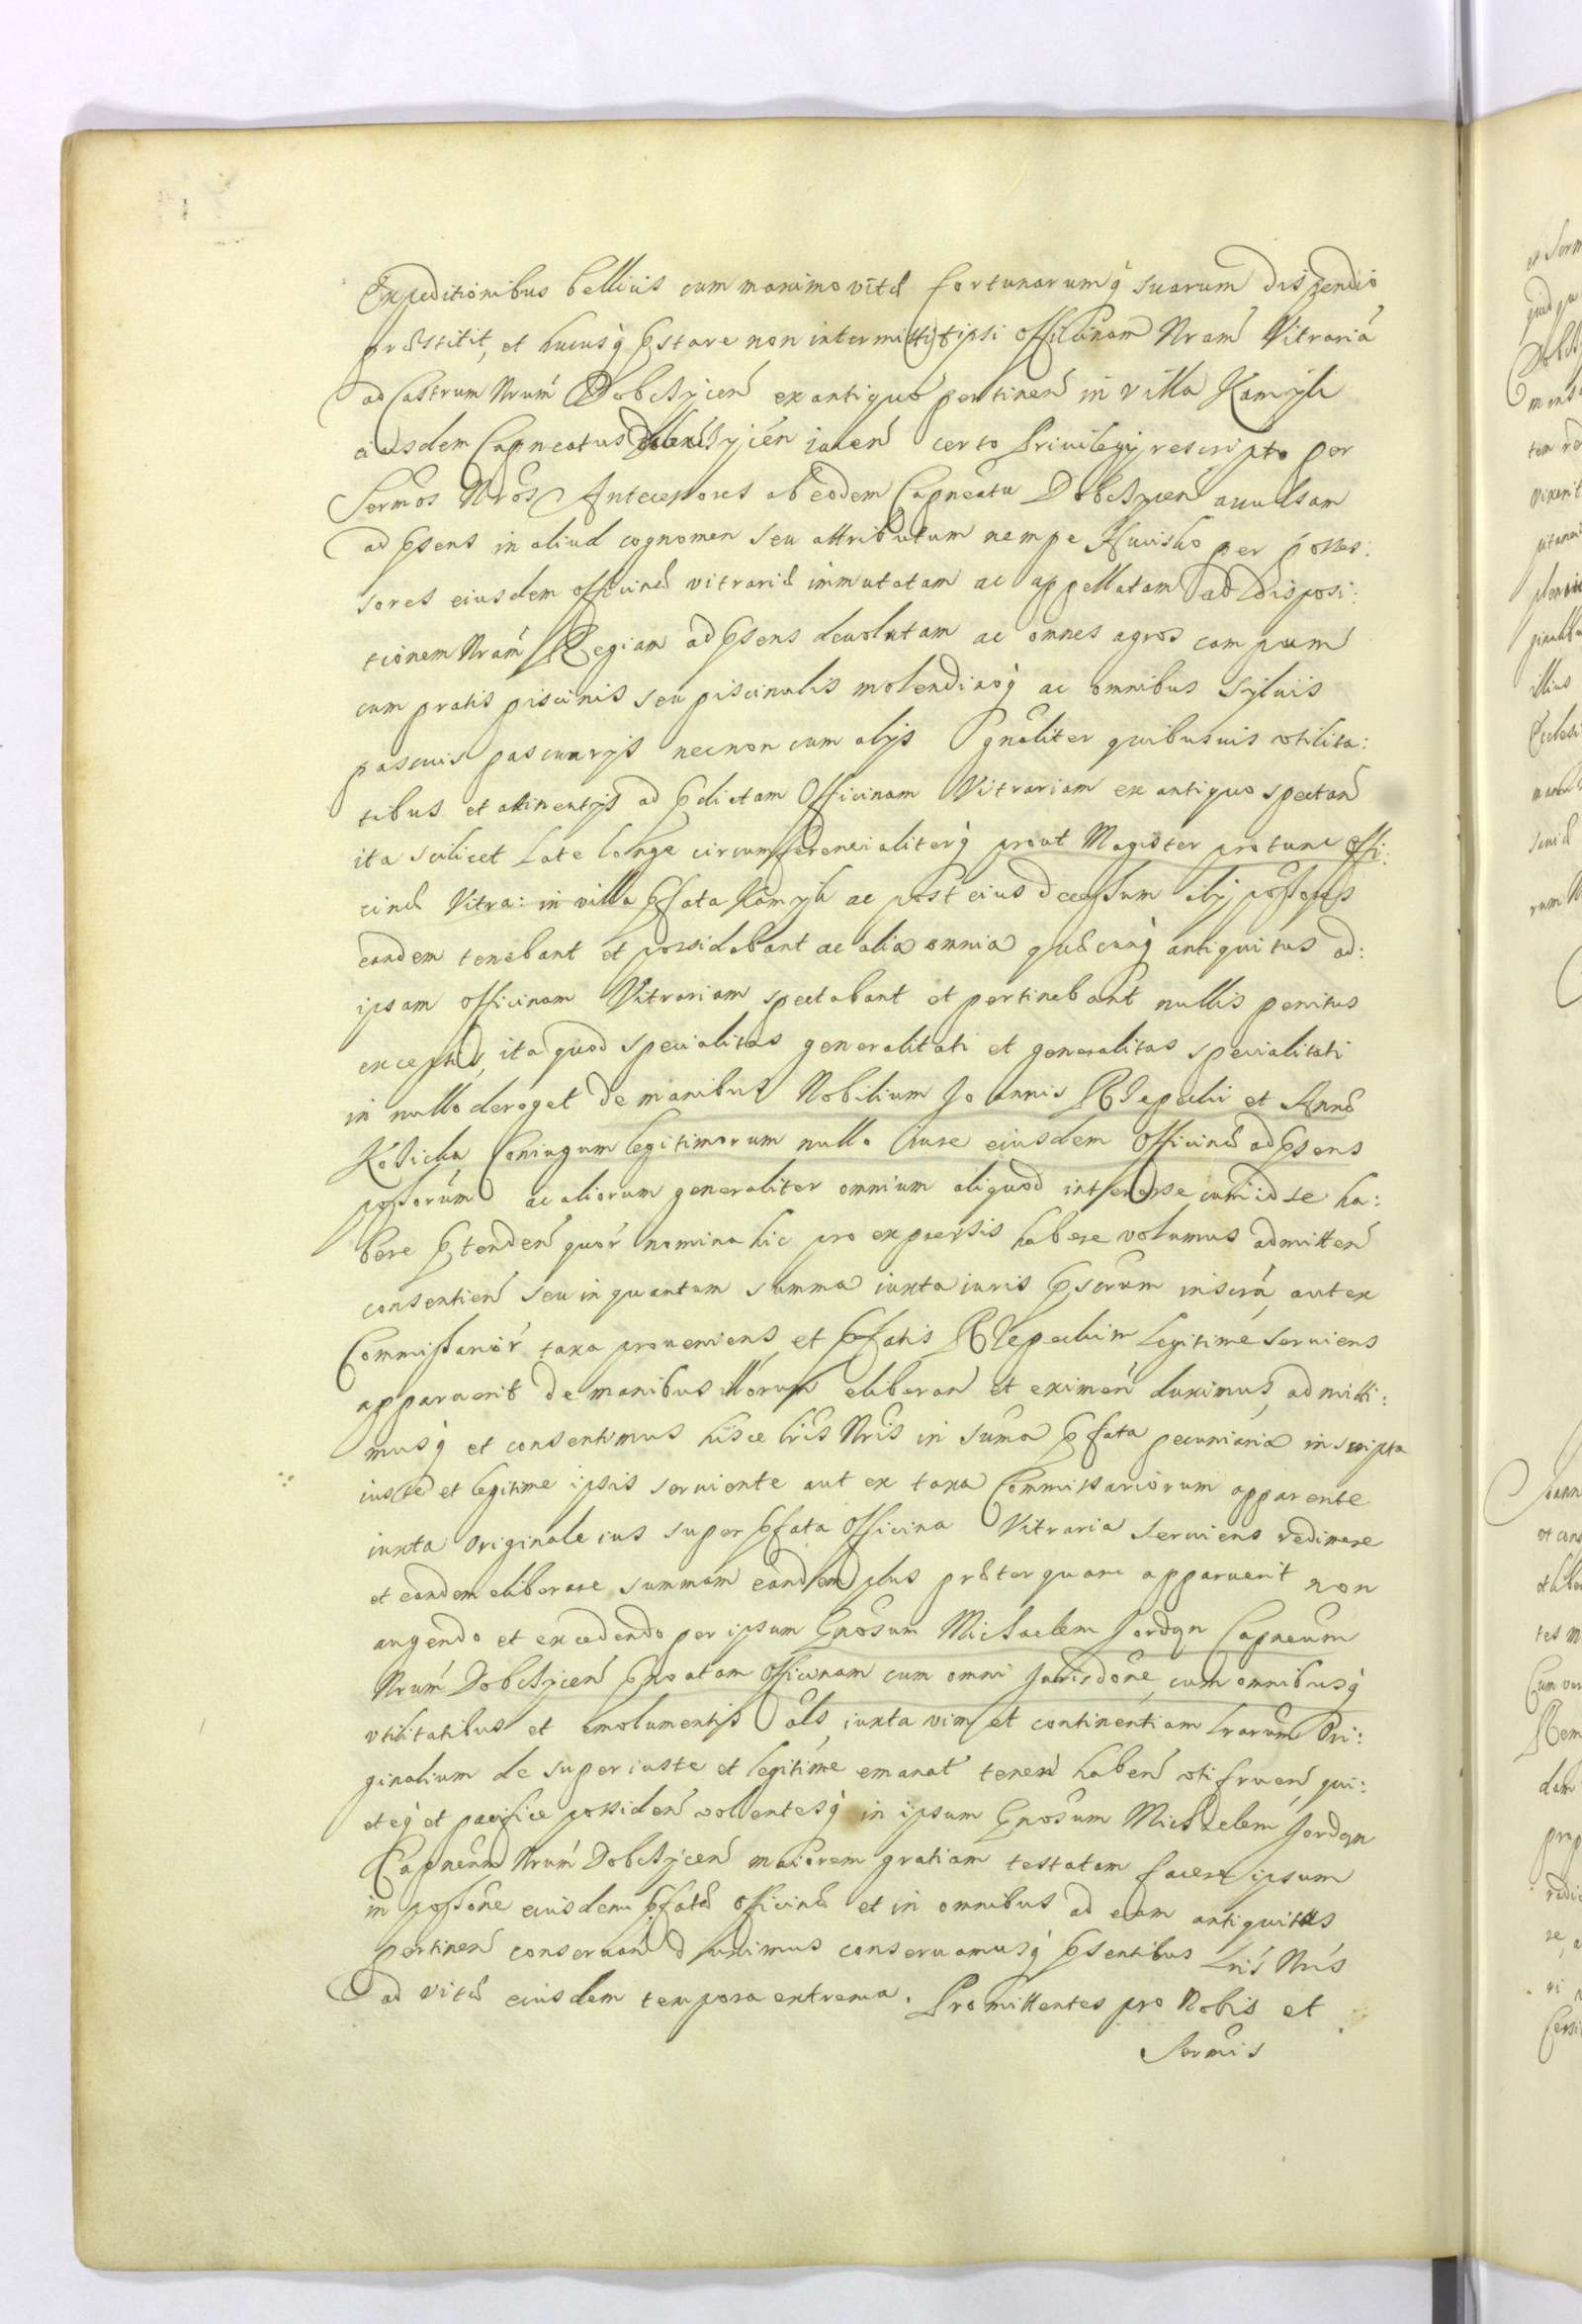 Expeditionibus bellicis cum maximo vitæ fortunarumq́ suarum dispendio
præstitit, et hucusq́ p̃stare non intermittit ipsi officinam Nram̃ Vitrariã
ad Castrum Nrum̃ Dobczycen̄ ex antiquo pertinen̄ in villa Kamyk
eiusdem Capneatus Dobczycen̄ iacen̄ certo Privilegij rescripto per
Sermos Nros Antecessores ab eodem Capneatu Dobczycen̄ auulsam
ad p̃sens in aliud cognomen seu attributum nempe per posses:
sores eiusdem officinæ vitrariæ immutatam ac appellatam ad disposi:
tionem Nram̃ Regiam ad p̃sens deuolutam ac omnes agros campum
cum pratis piscinis seu piscinulis molendinoq́ ac omnibus syluis
pascuis pascuarijs necnon cum alijs gnãliter quibusuis vtilita:
tibus et attinentijs ad p̃dictam Officinam Vitrariam ex antiquo spectan̄
ita scilicet late longe circumferencialiterq́ prout Magister pro tunc offi:
cinæ Vitra: in villa p̃fata Kamyk ac post eius decessum alij possess̃
eandem tenebant et possidebant ac alia omnia quæcunq́ antiquitus ad:
ipsam officinam Vitrariam spectabant et pertinebant nullis penitus
exceptis, ita quod specialitas generalitati et generalitas specialitati
in nullo deroget de manibus Nobilium Joannis Rzepecki et Annæ
Coniugum legitimorum nullo iure eiusdem Officinæ ad p̃sens
possorum̃ ac aliorum generaliter omnium aliquod interesse circa id se ha:
bere p̃tenden̄ quor̃ nomina hic pro expressis habere volumus admitten̄
consentien̄ seu in quantum summa iuxta iuris p̃sorum inscrã, aut ex
Commissarior̃ taxa proueniens et p̃fatis Rzepeckim legitime seruiens
apparuerit de manibus illorum eliberan̄ et eximen̄ duximus, admitti:
musq́ et consentimus hisce lris̃ Nris̃ in suma p̃fata pecuniaria inscripta
iuste et legitime ipsis seruiente aut ex taxa Commissariorum apparente
iuxta originale ius super p̃fata Officina Vitraria seruiens redimere
et eandem eliberare summam eandem plus præterquam apparuerit non
augendo et excedendo per ipsum Gnosum Michaelem Jordan Capneum
Nrum̃ Dobczycen̄ p̃noatam officinam cum omni Jurisdone, cum omnibusq́
vtilitatibus et emolumentis als, iuxta vim et continentiam lrarum Ori:
ginalium de super iuste et legitime emanat̃ tenen̄ haben̄ vtifruen̄ qui:
eteq́ et pacifice possiden̄ volentesq́ in ipsum Gnosum Michaelem Jordan
Capneum Nrum̃ Dobczycen̄ maiorem gratiam testatam facere ipsum
in possone eiusdem p̃fatæ officinæ et in omnibus ad eam antiquitus
pertinen̄ conseruan̄ duximus conseruamusq́ p̃sentibus Lris̃ Nris̃
ad vitæ eiusdem tempora extrema. Promittentes pro Nobis et
Sermis